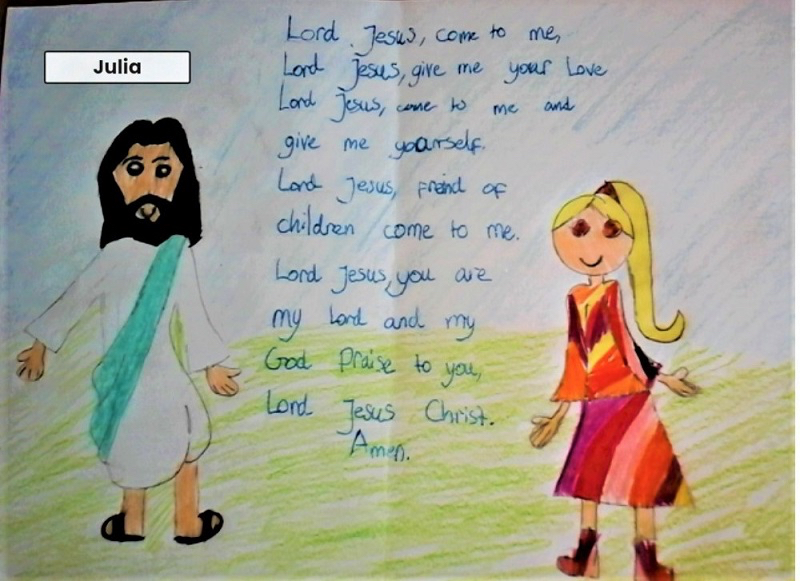 Julia
Lord Jesus, come to me,
Lord Jesus, give me your Love
Lord Jesus, come to me and
give me yourself.
Lord Jesus, freind of
children come to me.
Lord Jesus, you are
my Lord and my
God Praise to you,
Lord Jesus Christ.
Amen.